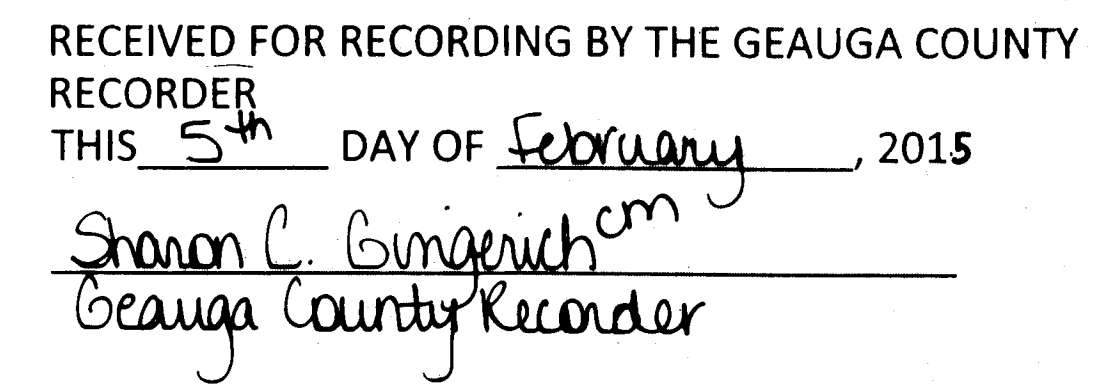 RECEIVED FOR RECORDING BY THE GEAUGA COUNTY
RECORDER
THIS 5th DAY OF February, 2015
Sharon C. Gingerich cm
Geauga County Recorder